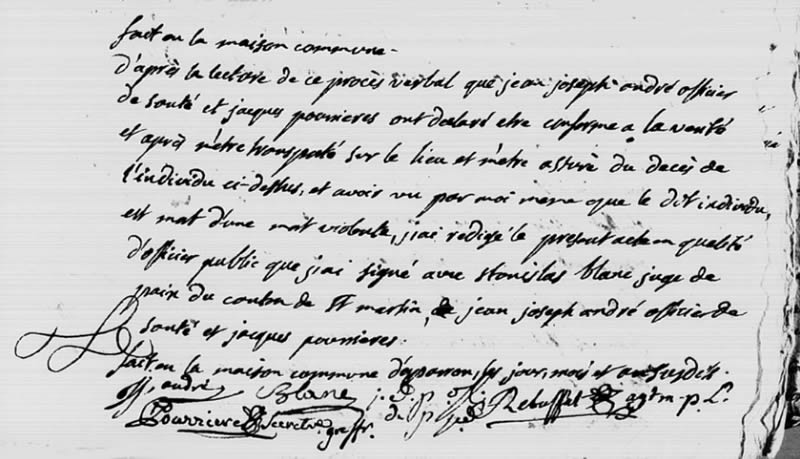 fait en la maison commune -
d'après la lecture de ce procès verbal que jean joseph andré officier
de santé et jacques pourrieres ont declaré etre conforme a la verité
et après m'etre transporté sur le lieu et m'etre assuré du decès de
l'individu ci-dessus, et avoir vu par moi meme que le dit individu,
est mort d'une mort violente, j'ai redigé le present acte en qualité
d'officier public que j'ai signé avec stanislas blanc juge de
paix du canton de st martin, de jean joseph andré officier de
santé et jacques pourrieres.
fait en la maison commune d'esparron, les jour, mois et an susdits.
offi, andré Blanc j. d. p. Rebuffat agt m. p. l.
Pourriere secretre greffr.